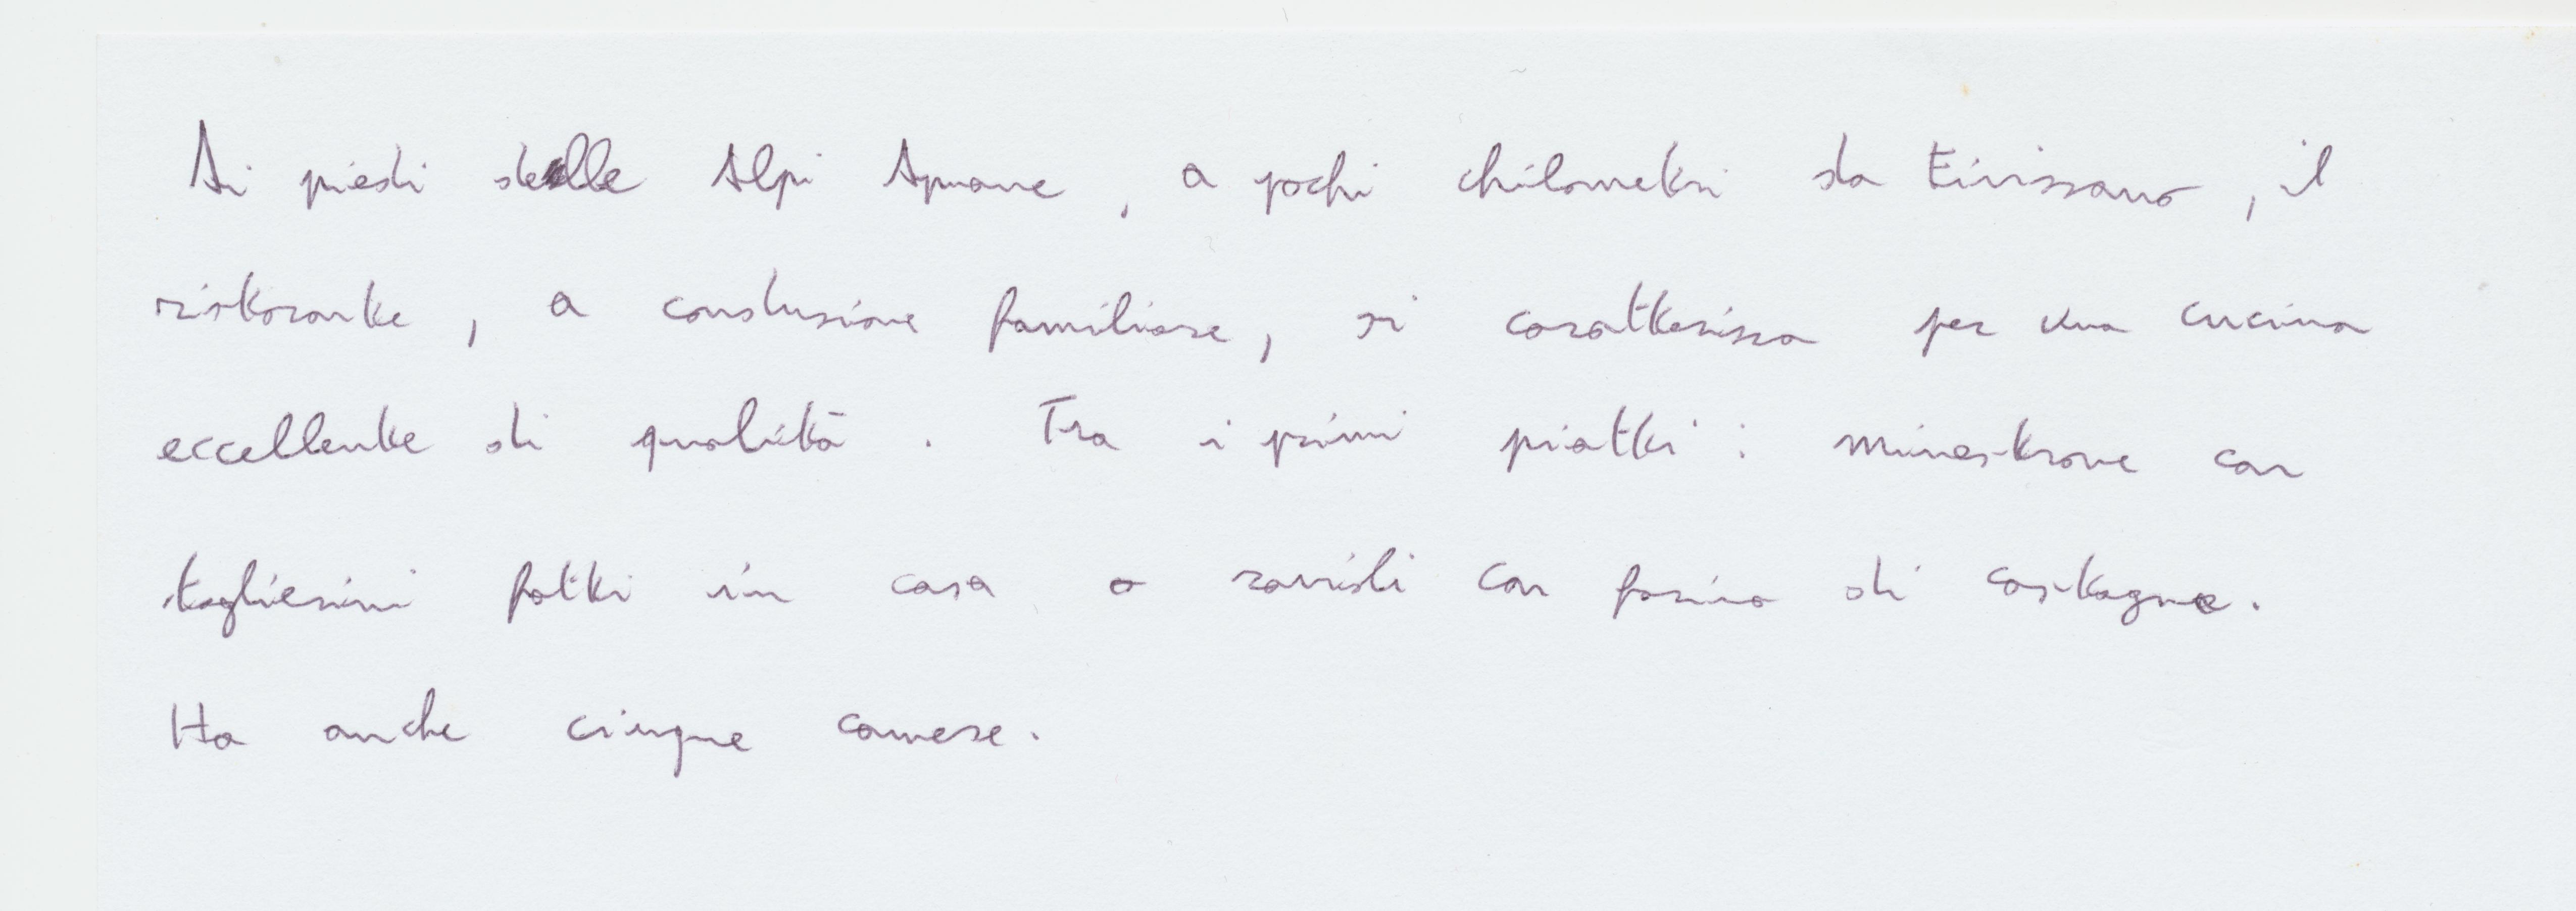 Ai piedi delle Alpi Apuane, a pochi chilometri da Fivizzano, il
ristorante, a conduzione familiare, si caratterizza per una cucina
eccellente di qualità. Tra i primi piatti: minestrone con
taglierini fatti in casa o ravioli con farina di castagne.
Ha anche cinque camere.